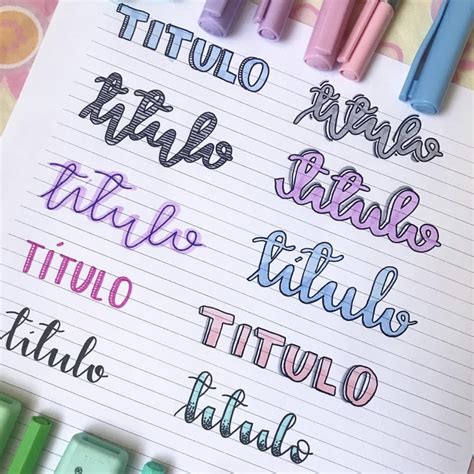 TITULO
titulo
titulo
TÍTULO
titulo
titulo
titulo
título
TITULO
titulo